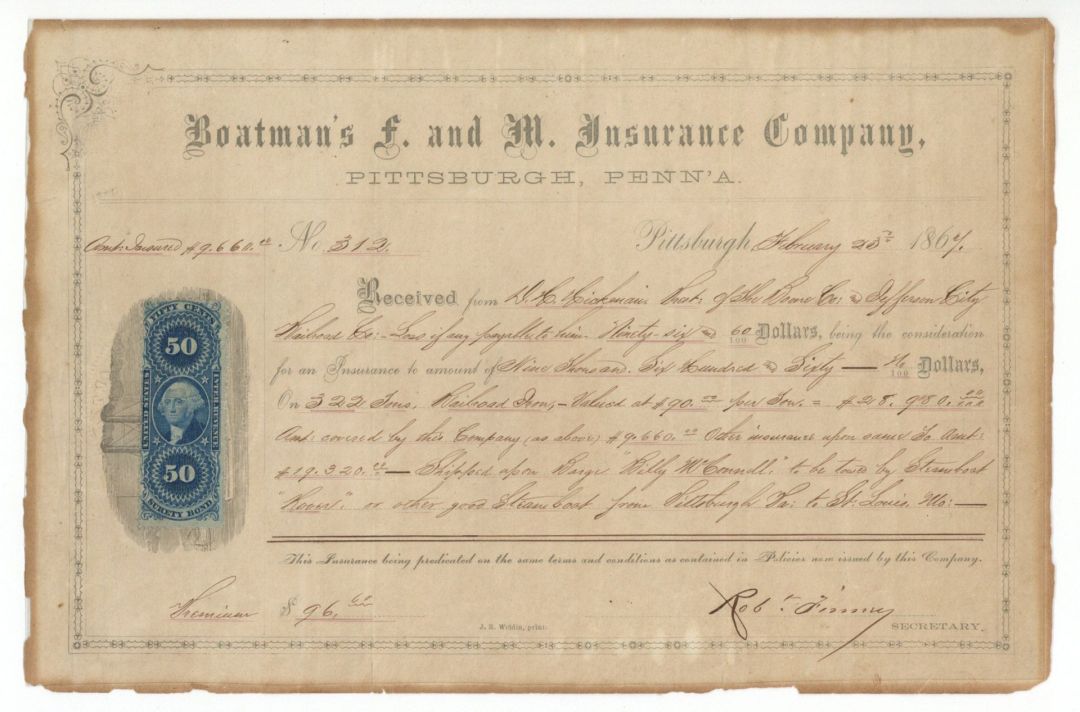 Boatman's F. and M. Insurance Company,
PITTSBURGH, PENN'A.
Amt: Insured $9.660.00 No. 312. Pittsburgh February 25th 1867.
Received from D. H. Hickman Prest: of the Boone Co: & Jefferson City
Railroad Co: - Loss if any payable to him Ninety-six & 60/100 Dollars, being the consideration
for an Insurance to amount of Nine Thousand Six Hundred & Sixty — No/100 Dollars,
On 322 Tons, Railroad Iron, - Valued at $90.00 per Ton. = $28.980.00/100
Amt: covered by this Company (as above) $9.660.00 Other insurance upon same to amt:
$19.320.00 — Shipped upon Barge "Billy McConnell," to be towed by Steamboat
"Rover," or other good Steamboat from Pittsburgh Pa: to St. Louis, Mo: —
This Insurance being predicated on the same terms and conditions as contained in Policies now issued by this Company.
Premium $ 96.60
Robt. Finney
J. R. Weldin, print.
SECRETARY.
FIFTY CENTS
50
UNITED STATES
INTER. REVENUE
50
SURETY BOND